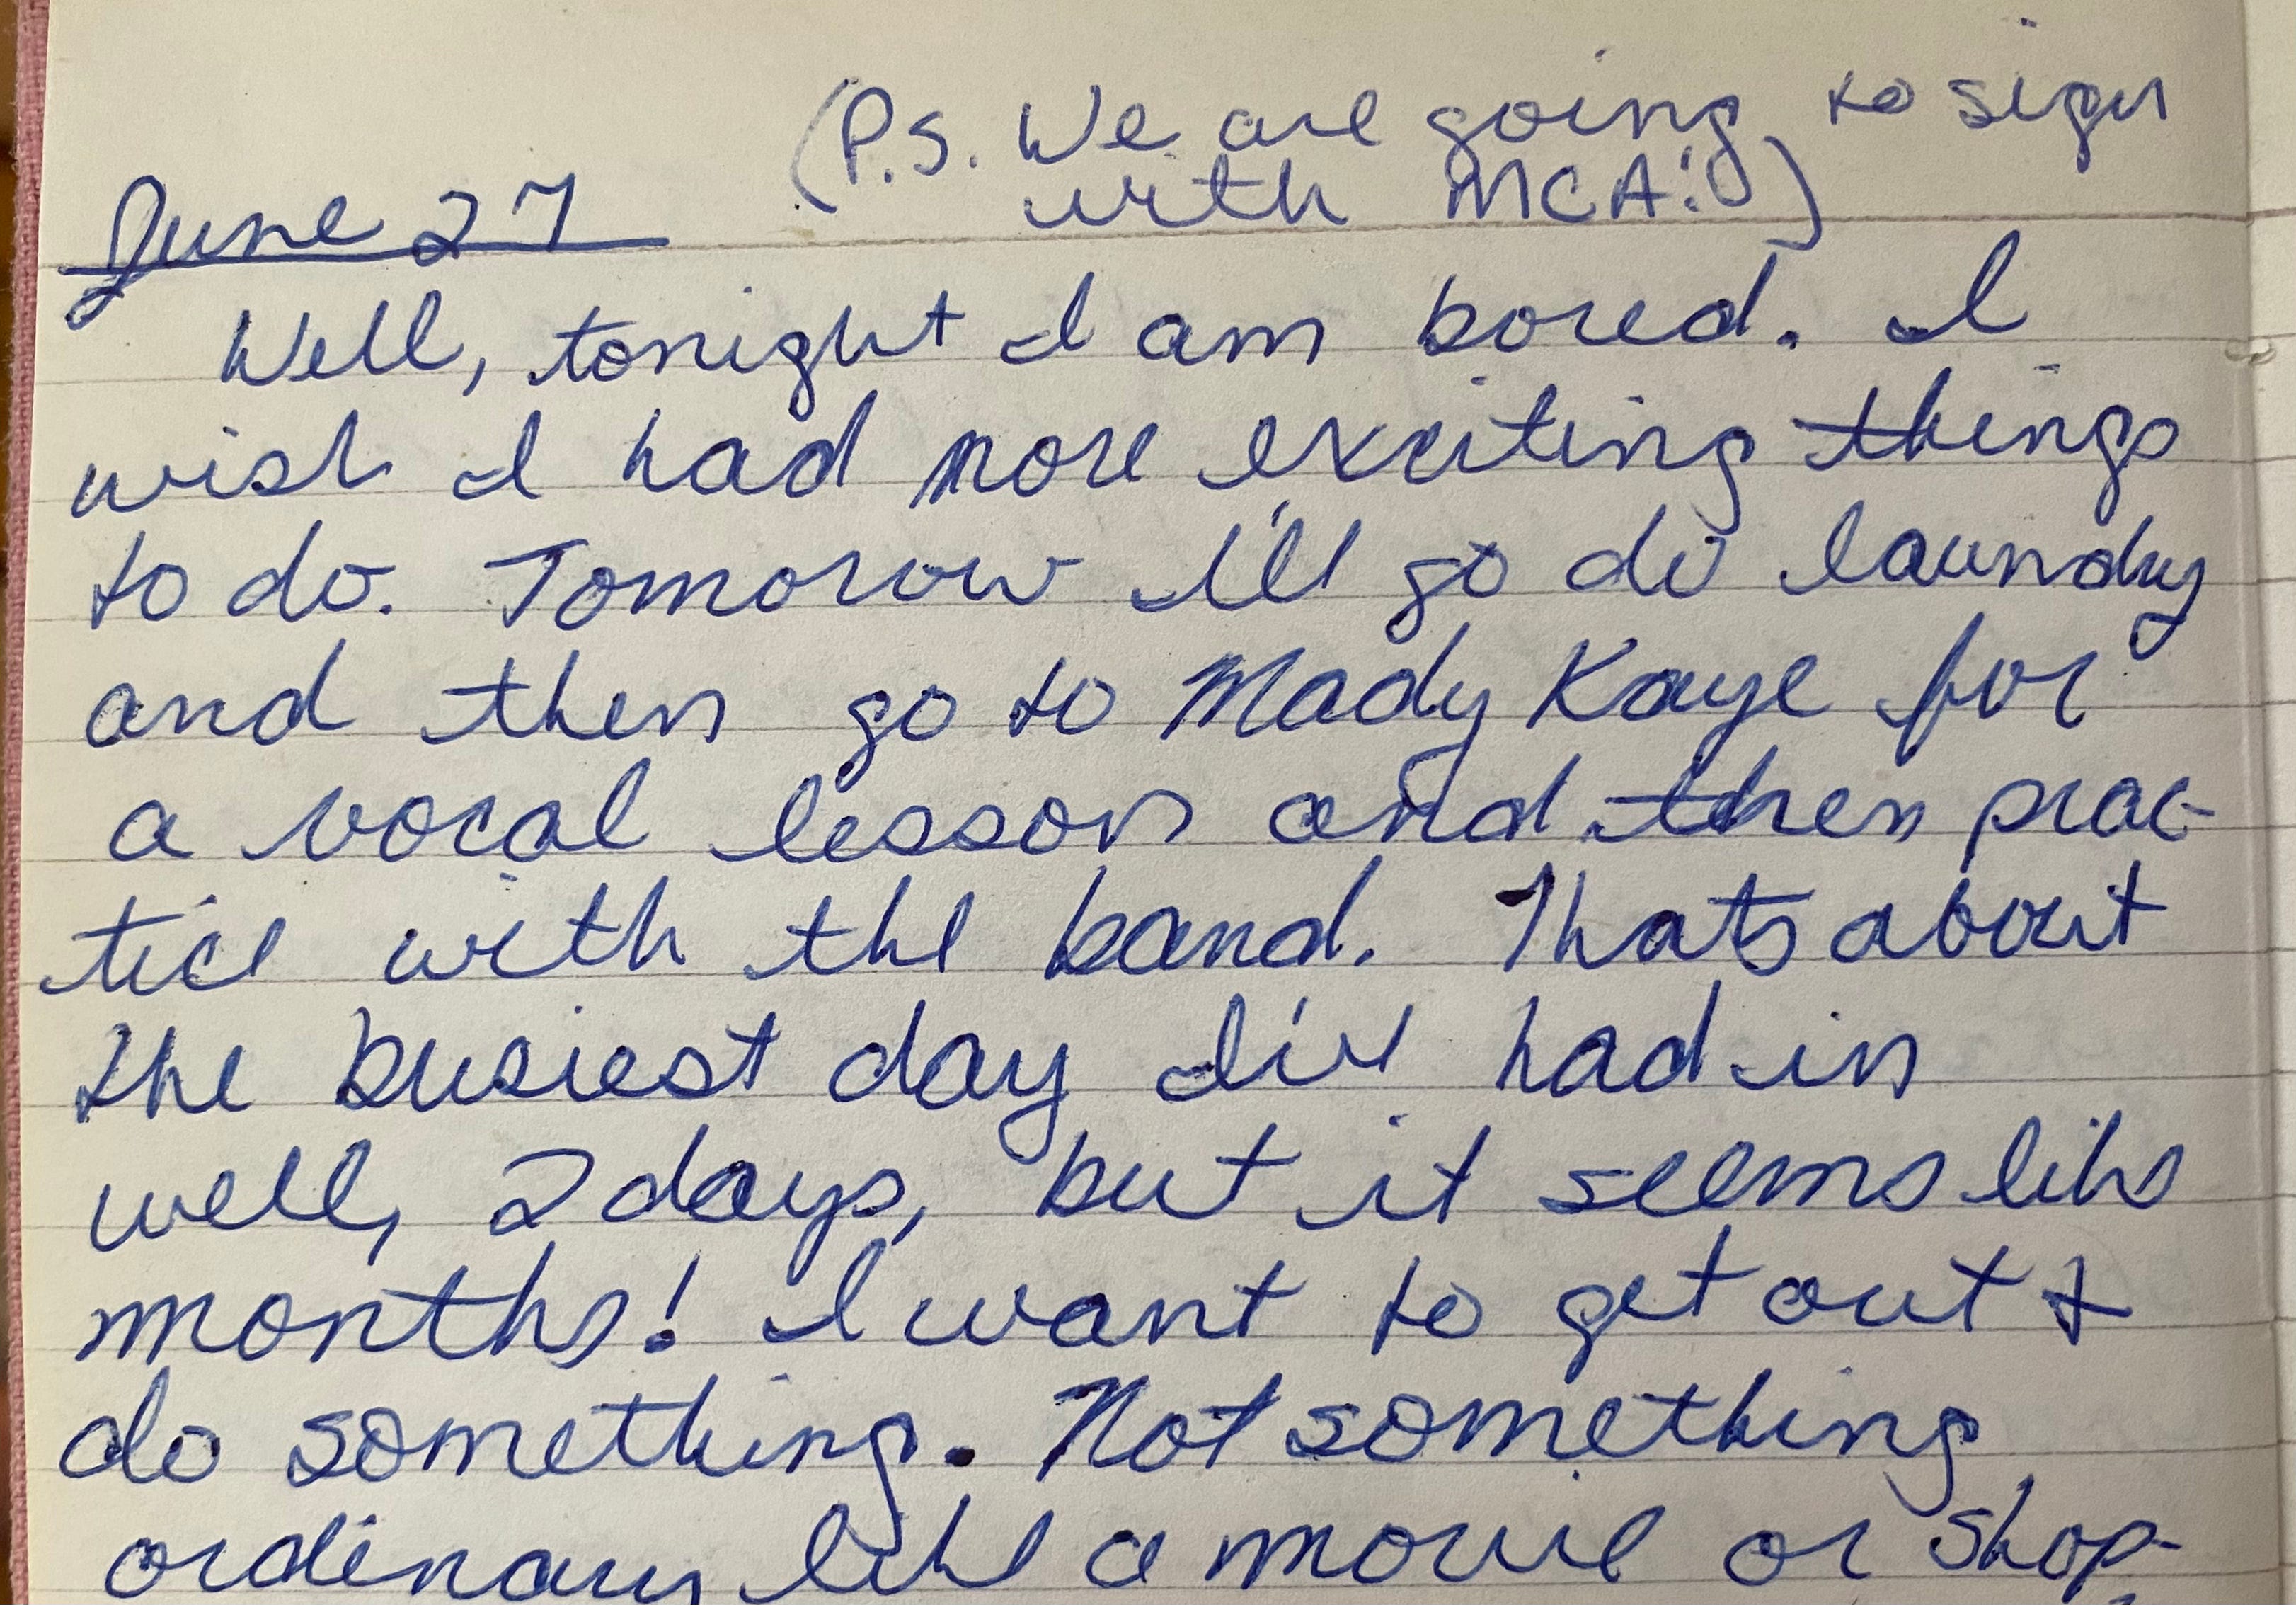 (P.S. We are going to sign
with MCA!)
June 27
Well, tonight I am bored. I
wish I had more exciting things
to do. Tomorow I'll go do laundry
and then go to Mady Kaye for
a vocal lesson and then prac-
tice with the band. Thats about
the busiest day I've had in
well, 2 days, but it seems like
months! I want to get out &
do something. Not something
ordinary like a movie or shop-